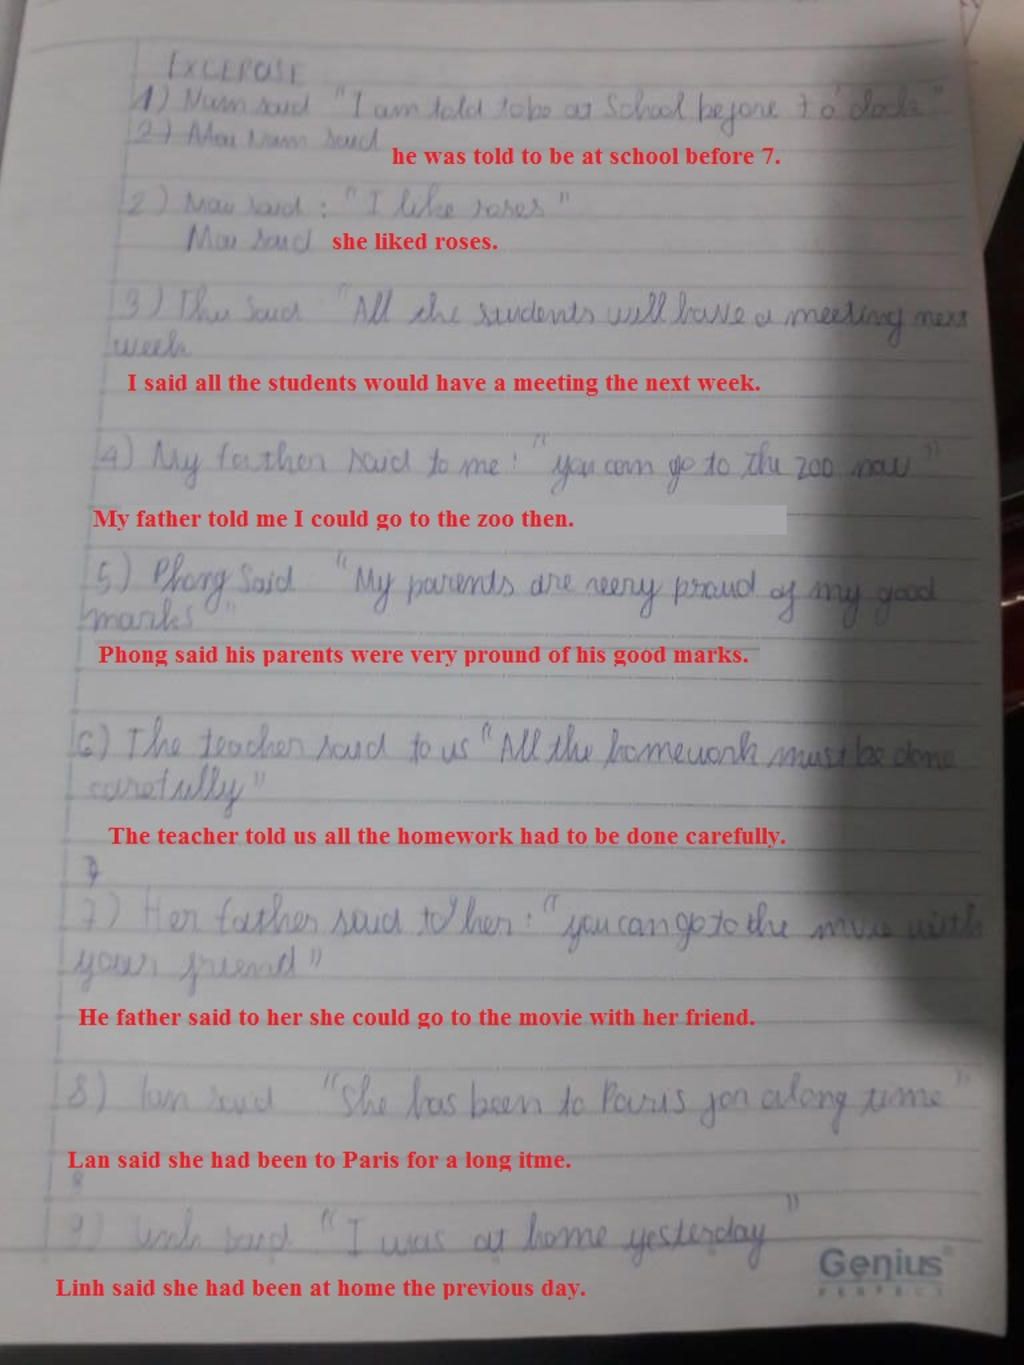 EXCERCISE
1) Nam said "I am told to be at School before 7 o'clock"
2) Mai Nam said
he was told to be at school before 7.
2) Mai said : "I like roses"
Mai said she liked roses.
3) Thu said "All the students will have a meeting next
week
I said all the students would have a meeting the next week.
4) My father said to me : "you can go to the zoo now"
My father told me I could go to the zoo then.
5) Phong said "My parents are very proud of my good
marks"
Phong said his parents were very pround of his good marks.
6) The teacher said to us "All the homework must be done
carefully"
The teacher told us all the homework had to be done carefully.
7) Her father said to her : "you can go to the movie with
your friend"
He father said to her she could go to the movie with her friend.
8) Lan said "She has been to Paris for a long time"
Lan said she had been to Paris for a long itme.
9) Linh said "I was at home yesterday"
Linh said she had been at home the previous day.
Genius
PERFECT